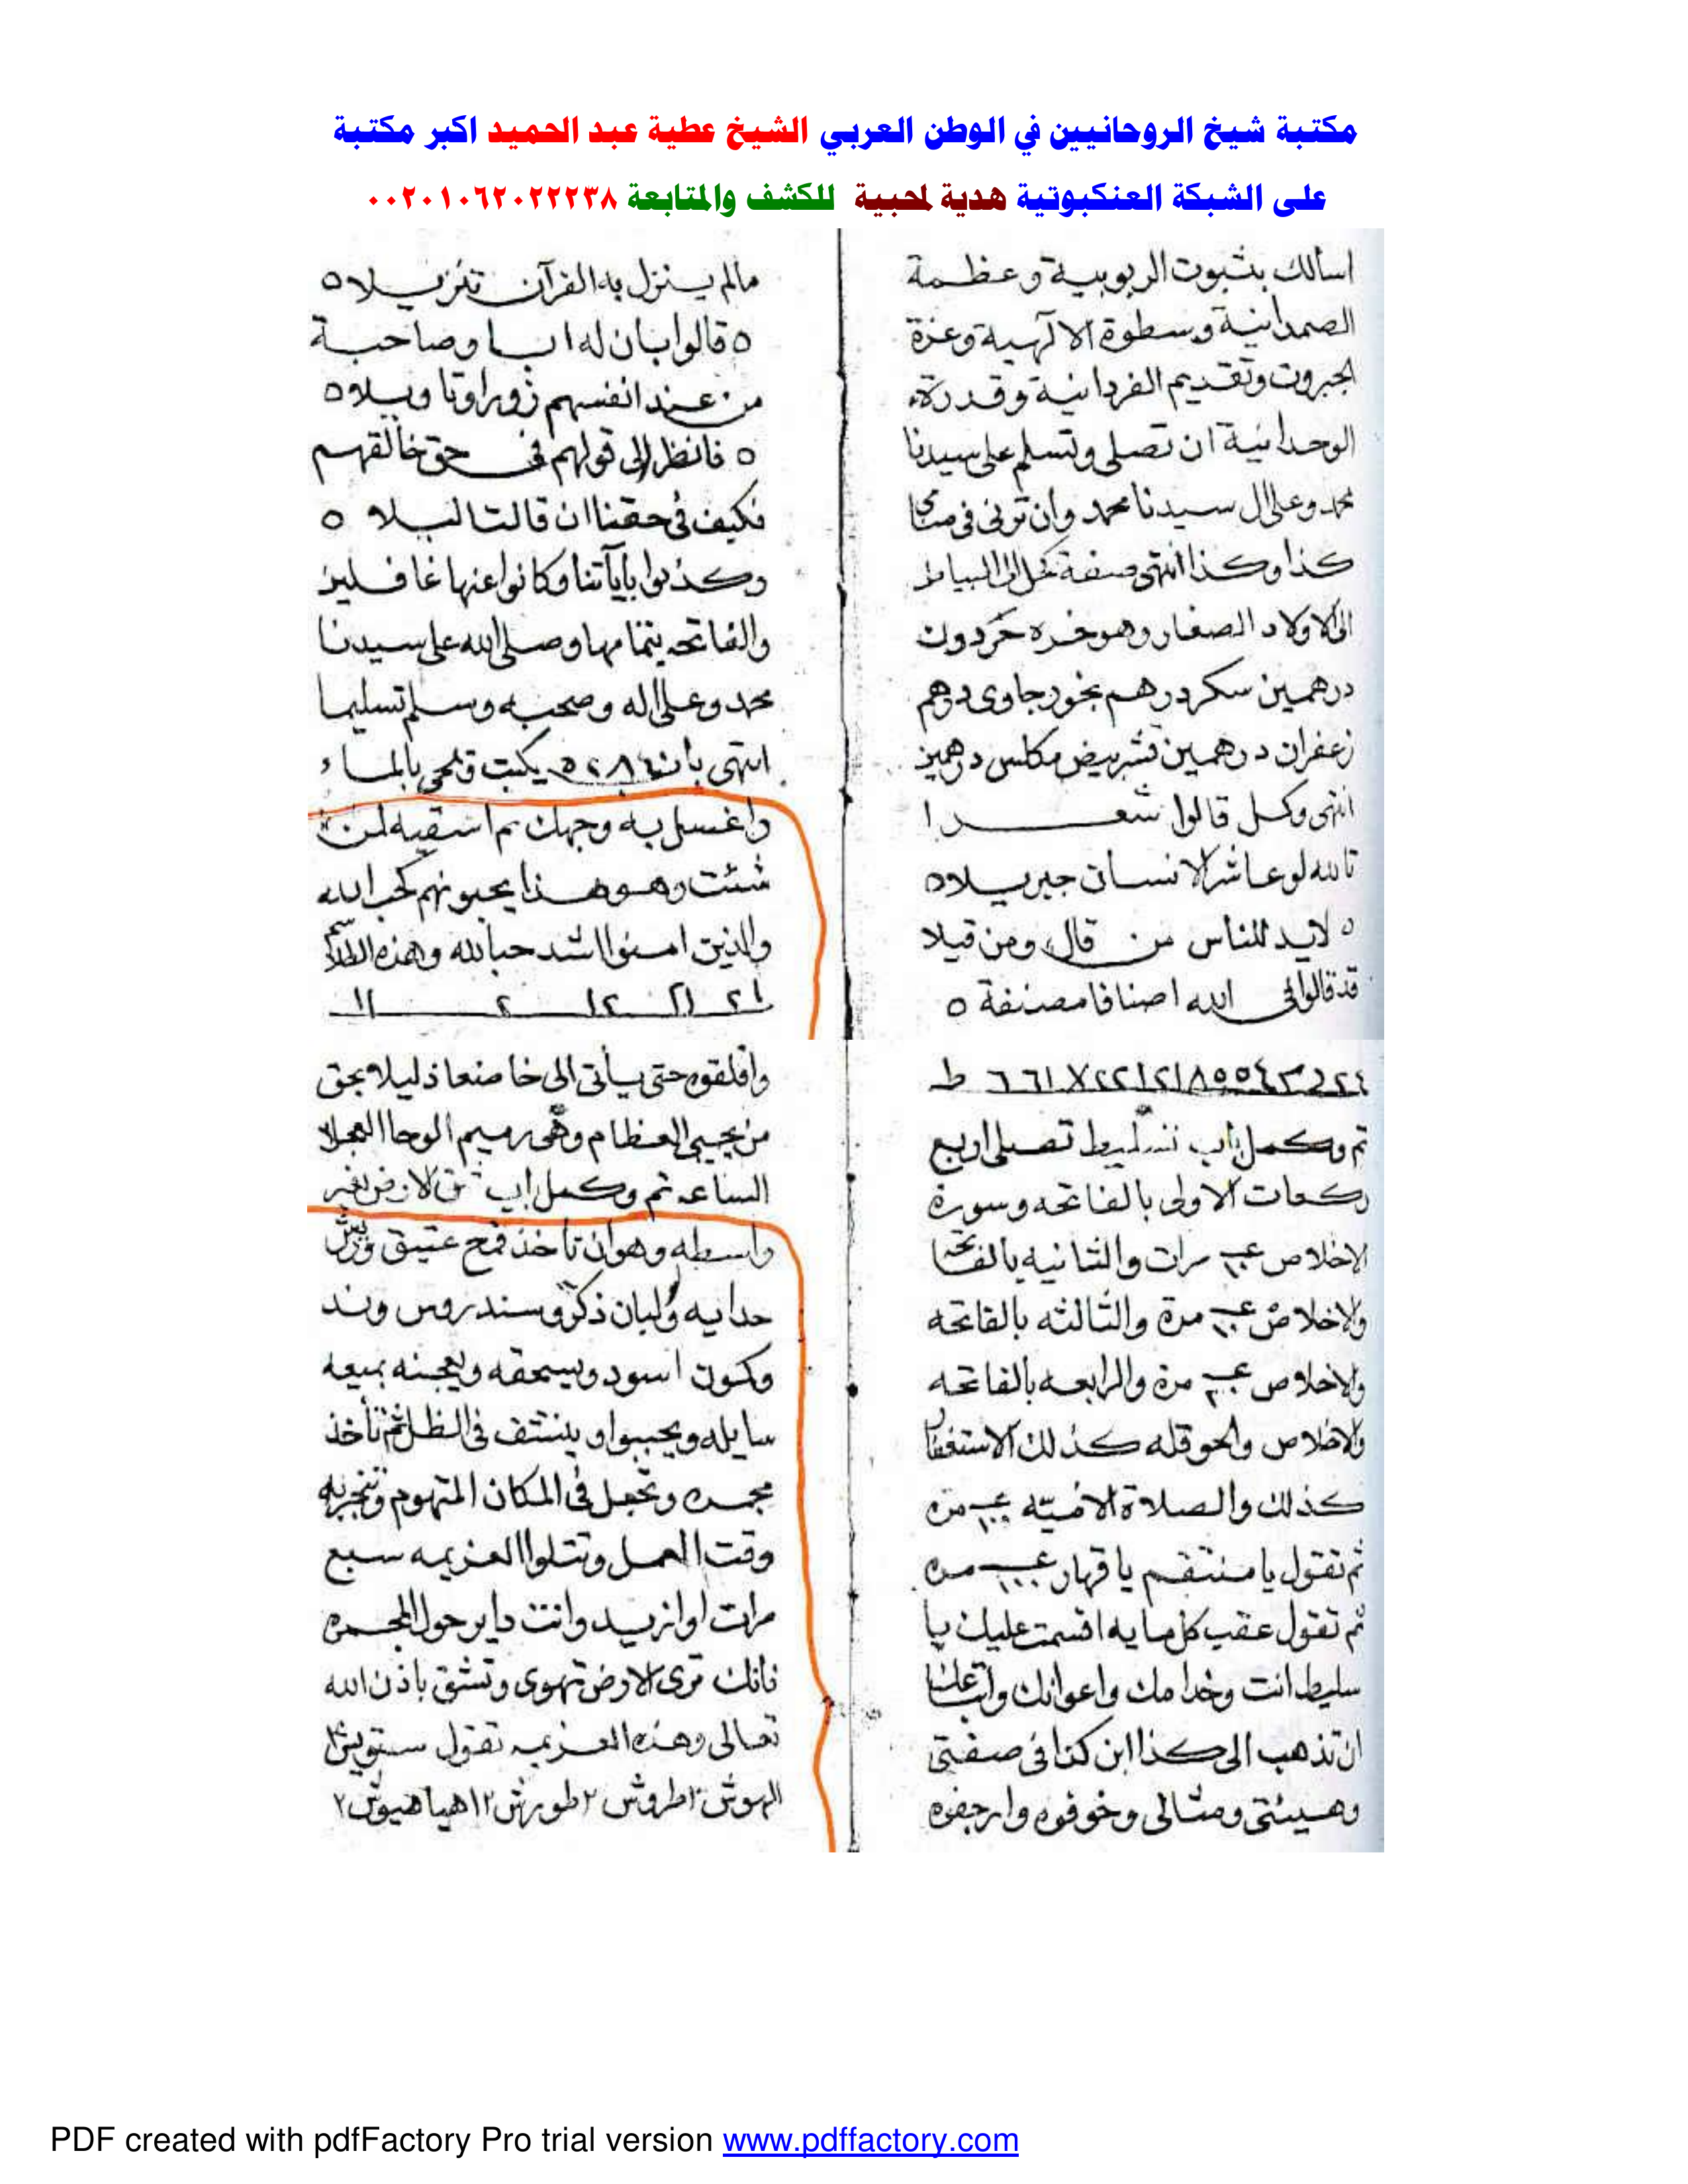 مكتبة شيخ الروحانيين في الوطن العربي الشيخ عطية عبد الحميد اكبر مكتبة
على الشبكة العنكبوتية هدية لمحبية للكشف والمتابعة ٠٠٢٠١٠٦٢٠٢٢٢٣٨
اسألك بثبوت الربوبية وعظمة
الصمدانية وسطوة الالهية وعزة
الجبروت وتقديم الفردانية وقدرة
الوحدانية ان تصلى وتسلم على سيدنا
محمد وعلى ال سيدنا محمد وان ترنى فى منامى
كذا وكذا انتهى صفة كحل البياض
الى الاولاد الصغار وهو خره حردون
درهمين سكر درهم بخور جاوى درهم
زعفران درهمين قشر بيض مكلس درهمين
انتهى وكل قالوا شعرا
تالله لو عاشر الانسان جبريلا ٥
٥ لابد للناس من قال ومن قيلا
قد قالوا فى الله اصنافا مصنفة ٥
مالم ينزل به القرآن تنزيلا ٥
٥ قالوا بان له ابا وصاحبة
من عند انفسهم زورا وتاويلا ٥
٥ فانظر الى قولهم فى حق خالقهم
فكيف فى حقنا ان قالت البلا ٥
وكذبوا بآياتنا وكانوا عنها غافلين
والفاتحه بتمامها وصلى الله على سيدنا
محمد وعلى اله وصحبه وسلم تسليما
انتهى يكتب وتمحى بالماء
واغسل به وجهك ثم اسقيه لمن
شئت وهو هذا يحبونهم كحب الله
والذين امنوا اشد حبا لله وهذه الطلاسم
تم وكمل باب تسليط تصلى اربع
ركعات الاولى بالفاتحه وسورة
الاخلاص مرات والثانيه بالفاتحة
والاخلاص مرة والثالثه بالفاتحه
والاخلاص مرة والرابعه بالفاتحه
والاخلاص والحوقله كذلك الاستغفار
كذلك والصلاة الاميّه مره
ثم تقول يا منتقم يا قهار مره
ثم تقول عقب كل مايه اقسمت عليك يا
سليط انت وخدامك واعوانك واتباعك
ان تذهب الى كذا ابن كذا فى صفتى
وهيئتى ومثالى وخوفوه وارجفوه
واقلقوه حتى يأتى الى خاضعا ذليلا بحق
من يحيى العظام وهى رميم الوحا العجل
الساعه تم وكمل باب الارض بغير
واسطه وهو ان تاخذ قمح عتيق وريش
حدايه ولبان ذكر وسندروس وند
وكمون اسود ويسحقه ويعجنه بميعه
سايله ويحببو او ينشف فى الظل ثم تأخذ
مجمره وتجعل فى المكان المتهوم وتبخر به
وقت العمل وتتلوا العزيمه سبع
مرات او ازيد وانت داير حول المجمره
فانك ترى الارض تهوى وتنشق باذن الله
تعالى وهذه العزيمه تقول
الهوش ٢ طروش ٢ طورش ٢ اهيا هيوش ٢
PDF created with pdfFactory Pro trial version www.pdffactory.com